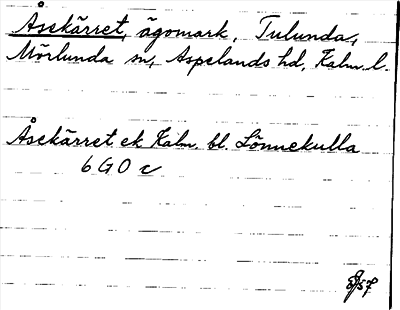 Åsekärret, ägomark, Tulunda,
Mörlunda sn, Aspelands hd, Kalm. l.
Åsekärret ek Kalm. bl. Lönnekulla
6 G O c